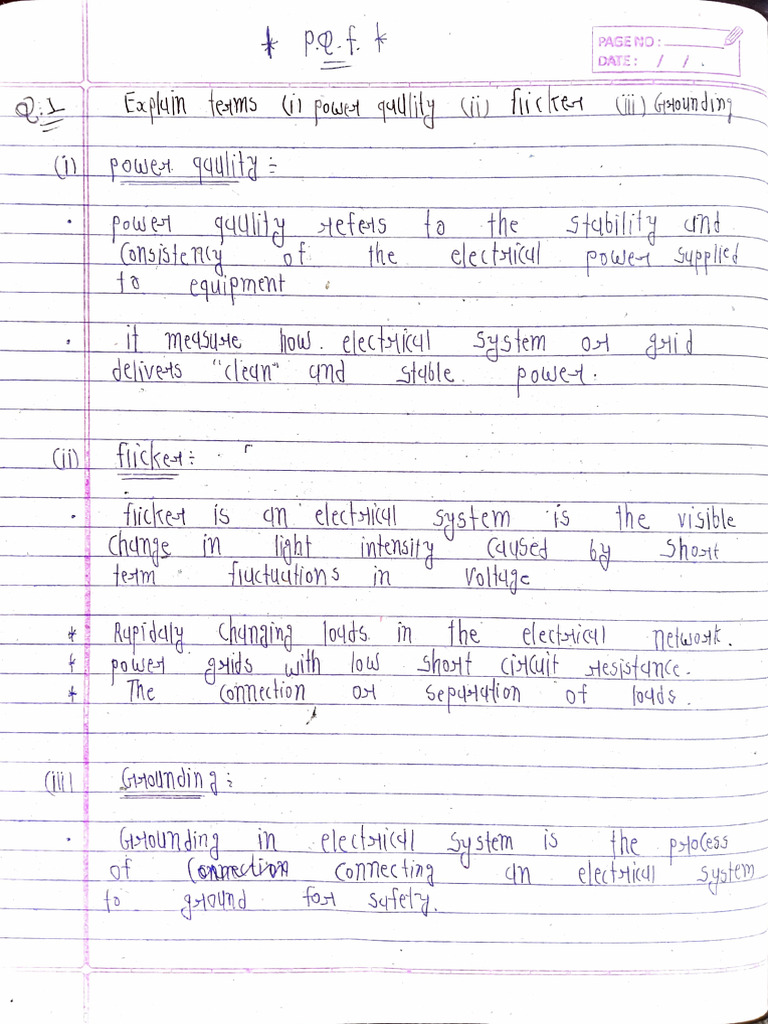 * P.Q.f. *
PAGE NO:
DATE: / / .
Q.1 Explain terms (i) power quality (ii) flicker (iii) Grounding
(i) power quality :-
· power quality refers to the stability and
consistency of the electrical power supplied
to equipment
· it measure how electrical system or grid
delivers "clean" and stable power.
(ii) flicker :-
· flicker is an electrical system is the visible
change in light intensity caused by short
term fluctuations in voltage
* Rapidaly changing loads in the electrical network.
* power grids with low short circuit resistance.
* The connection or separation of loads.
(iii) Grounding :-
· Grounding in electrical system is the process
of connection connecting an electrical system
to ground for safety.